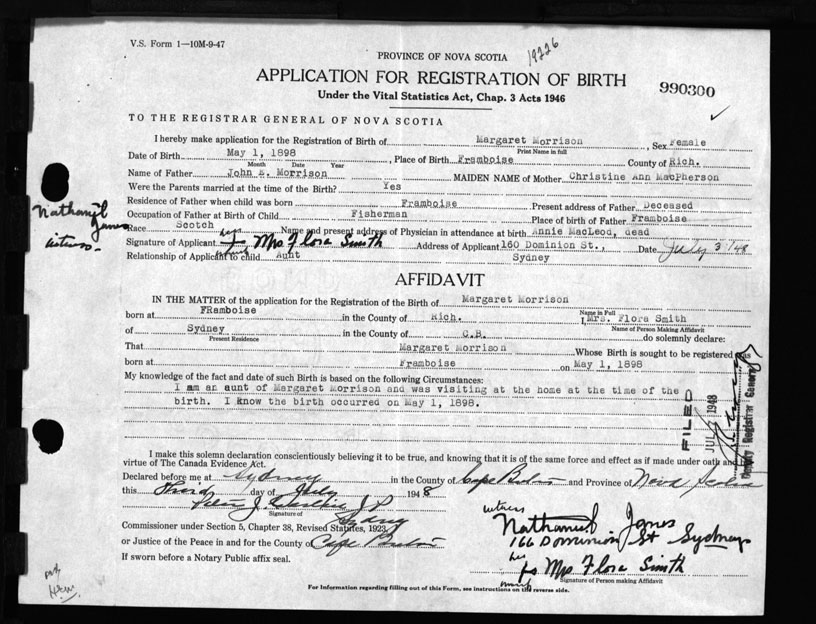 V.S. Form 1—10M-9-47
PROVINCE OF NOVA SCOTIA
19226
APPLICATION FOR REGISTRATION OF BIRTH
990300
Under the Vital Statistics Act, Chap. 3 Acts 1946
TO THE REGISTRAR GENERAL OF NOVA SCOTIA
I hereby make application for the Registration of Birth of Margaret Morrison, Sex Female
Print Name in full
Date of Birth May 1, 1898, Place of Birth Framboise County of Rich.
Month Date Year
Name of Father John E. Morrison MAIDEN NAME of Mother Christine Ann MacPherson
Were the Parents married at the time of the Birth? Yes
Residence of Father when child was born Framboise Present address of Father Deceased
Occupation of Father at Birth of Child Fisherman Place of birth of Father Framboise
Race Scotch Name and present address of Physician in attendance at birth Annie MacLeod, dead
Nathaniel
Jones
witness
Signature of Applicant her Mrs Flora Smith Address of Applicant 160 Dominion St., Date July 3/48
Relationship of Applicant to child Aunt Sydney
AFFIDAVIT
IN THE MATTER of the application for the Registration of Birth of Margaret Morrison
Name in Full
born at FRamboise in the County of Rich. I, Mrs. Flora Smith
Name of Person Making Affidavit
of Sydney in the County of C.B. do solemnly declare:
Present Residence
That Margaret Morrison Whose Birth is sought to be registered was
born at Framboise on May 1, 1898
My knowledge of the fact and date of such Birth is based on the following Circumstances:
I am an aunt of Margaret Morrison and was visiting at the home at the time of the
birth. I know the birth occurred on May 1, 1898.
FILED
JUL 1948
Deputy Registrar General
I make this solemn declaration conscientiously believing it to be true, and knowing that it is of the same force and effect as if made under oath and
virtue of The Canada Evidence Act.
Declared before me at Sydney in the County of Cape Breton and Province of Nova Scotia
this Third day of July 1948
J.P.
Signature of
Sydney
Commissioner under Section 5, Chapter 38, Revised Statutes, 1923,
or Justice of the Peace in and for the County of Cape Breton
If sworn before a Notary Public affix seal.
witness
Nathaniel Jones
166 Dominion St Sydney
her
Mrs Flora Smith
mark
Signature of Person making Affidavit
For Information regarding filling out of this Form, see instructions on the reverse side.